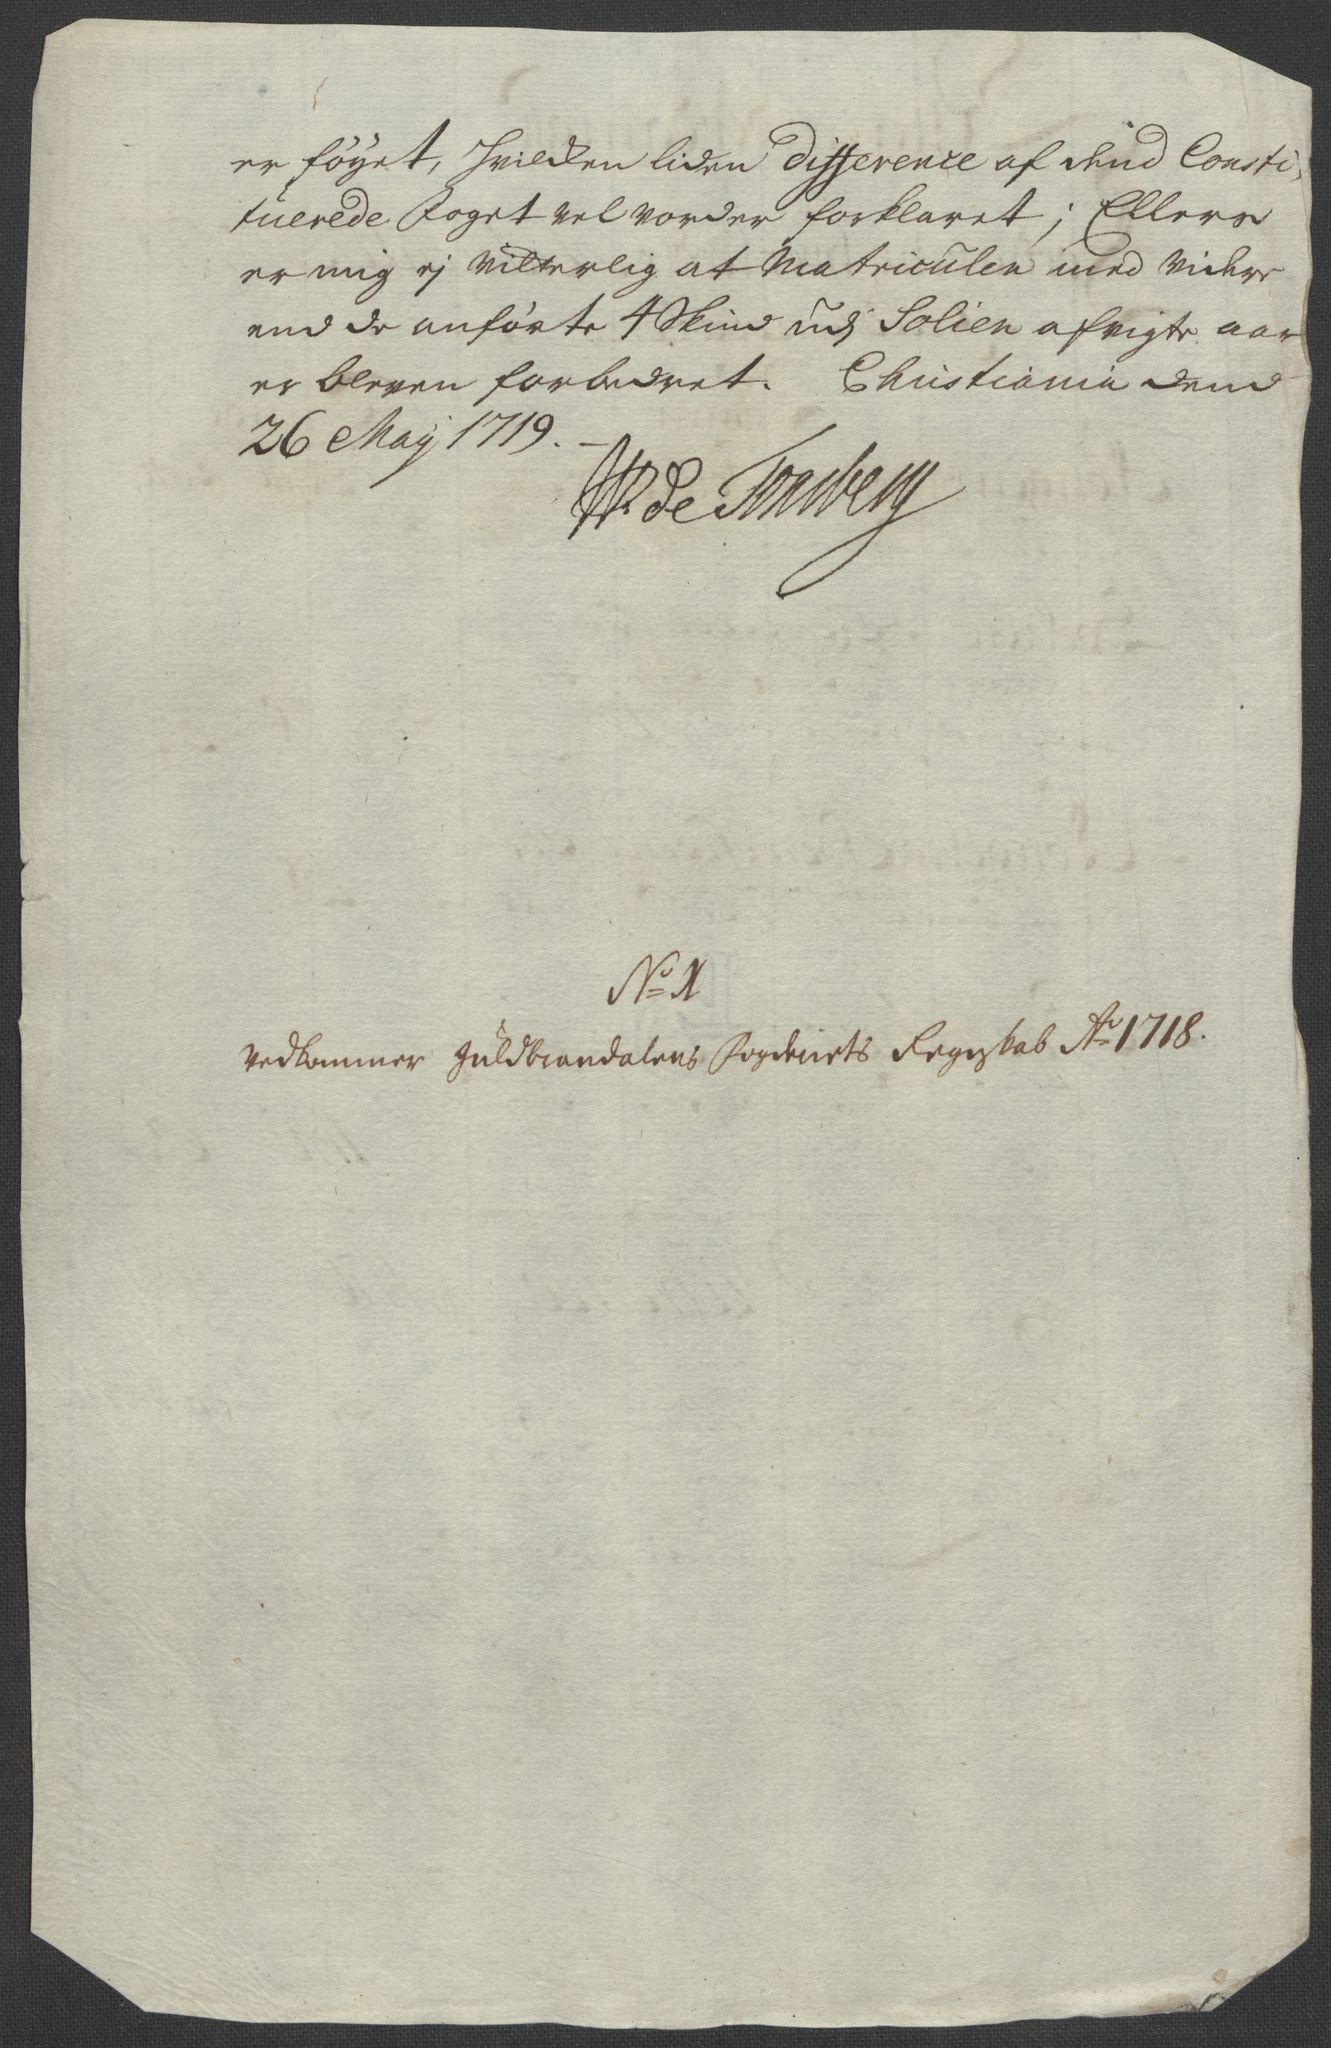 er føyet, hvilcken liden Difference af dend Consti-
tuerede Foget vel vorder forklaret; Ellers
er mig ej vitterlig at Matriculen med videre
end de anførte 4 Skind udj Solien afvigte aar
er bleven forbedret. Christiania dend
26 Maij 1719.
W de Tonsberg
No X
Vedkommer Guldbrandalens Fogderiets Regnskab Ao 1718.